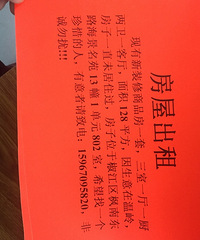 房屋出租
现有新装修商品房一套，三室一厅一厨
两卫一客厅，面积 128 平方，因生意在温岭，
房子一直未居住过，房子位于椒江区枫南东
路海景名苑 13 幢 1 单元 802 室，希望找一个
珍惜的人，有意者请致电：15967095820，非
诚勿扰！！！